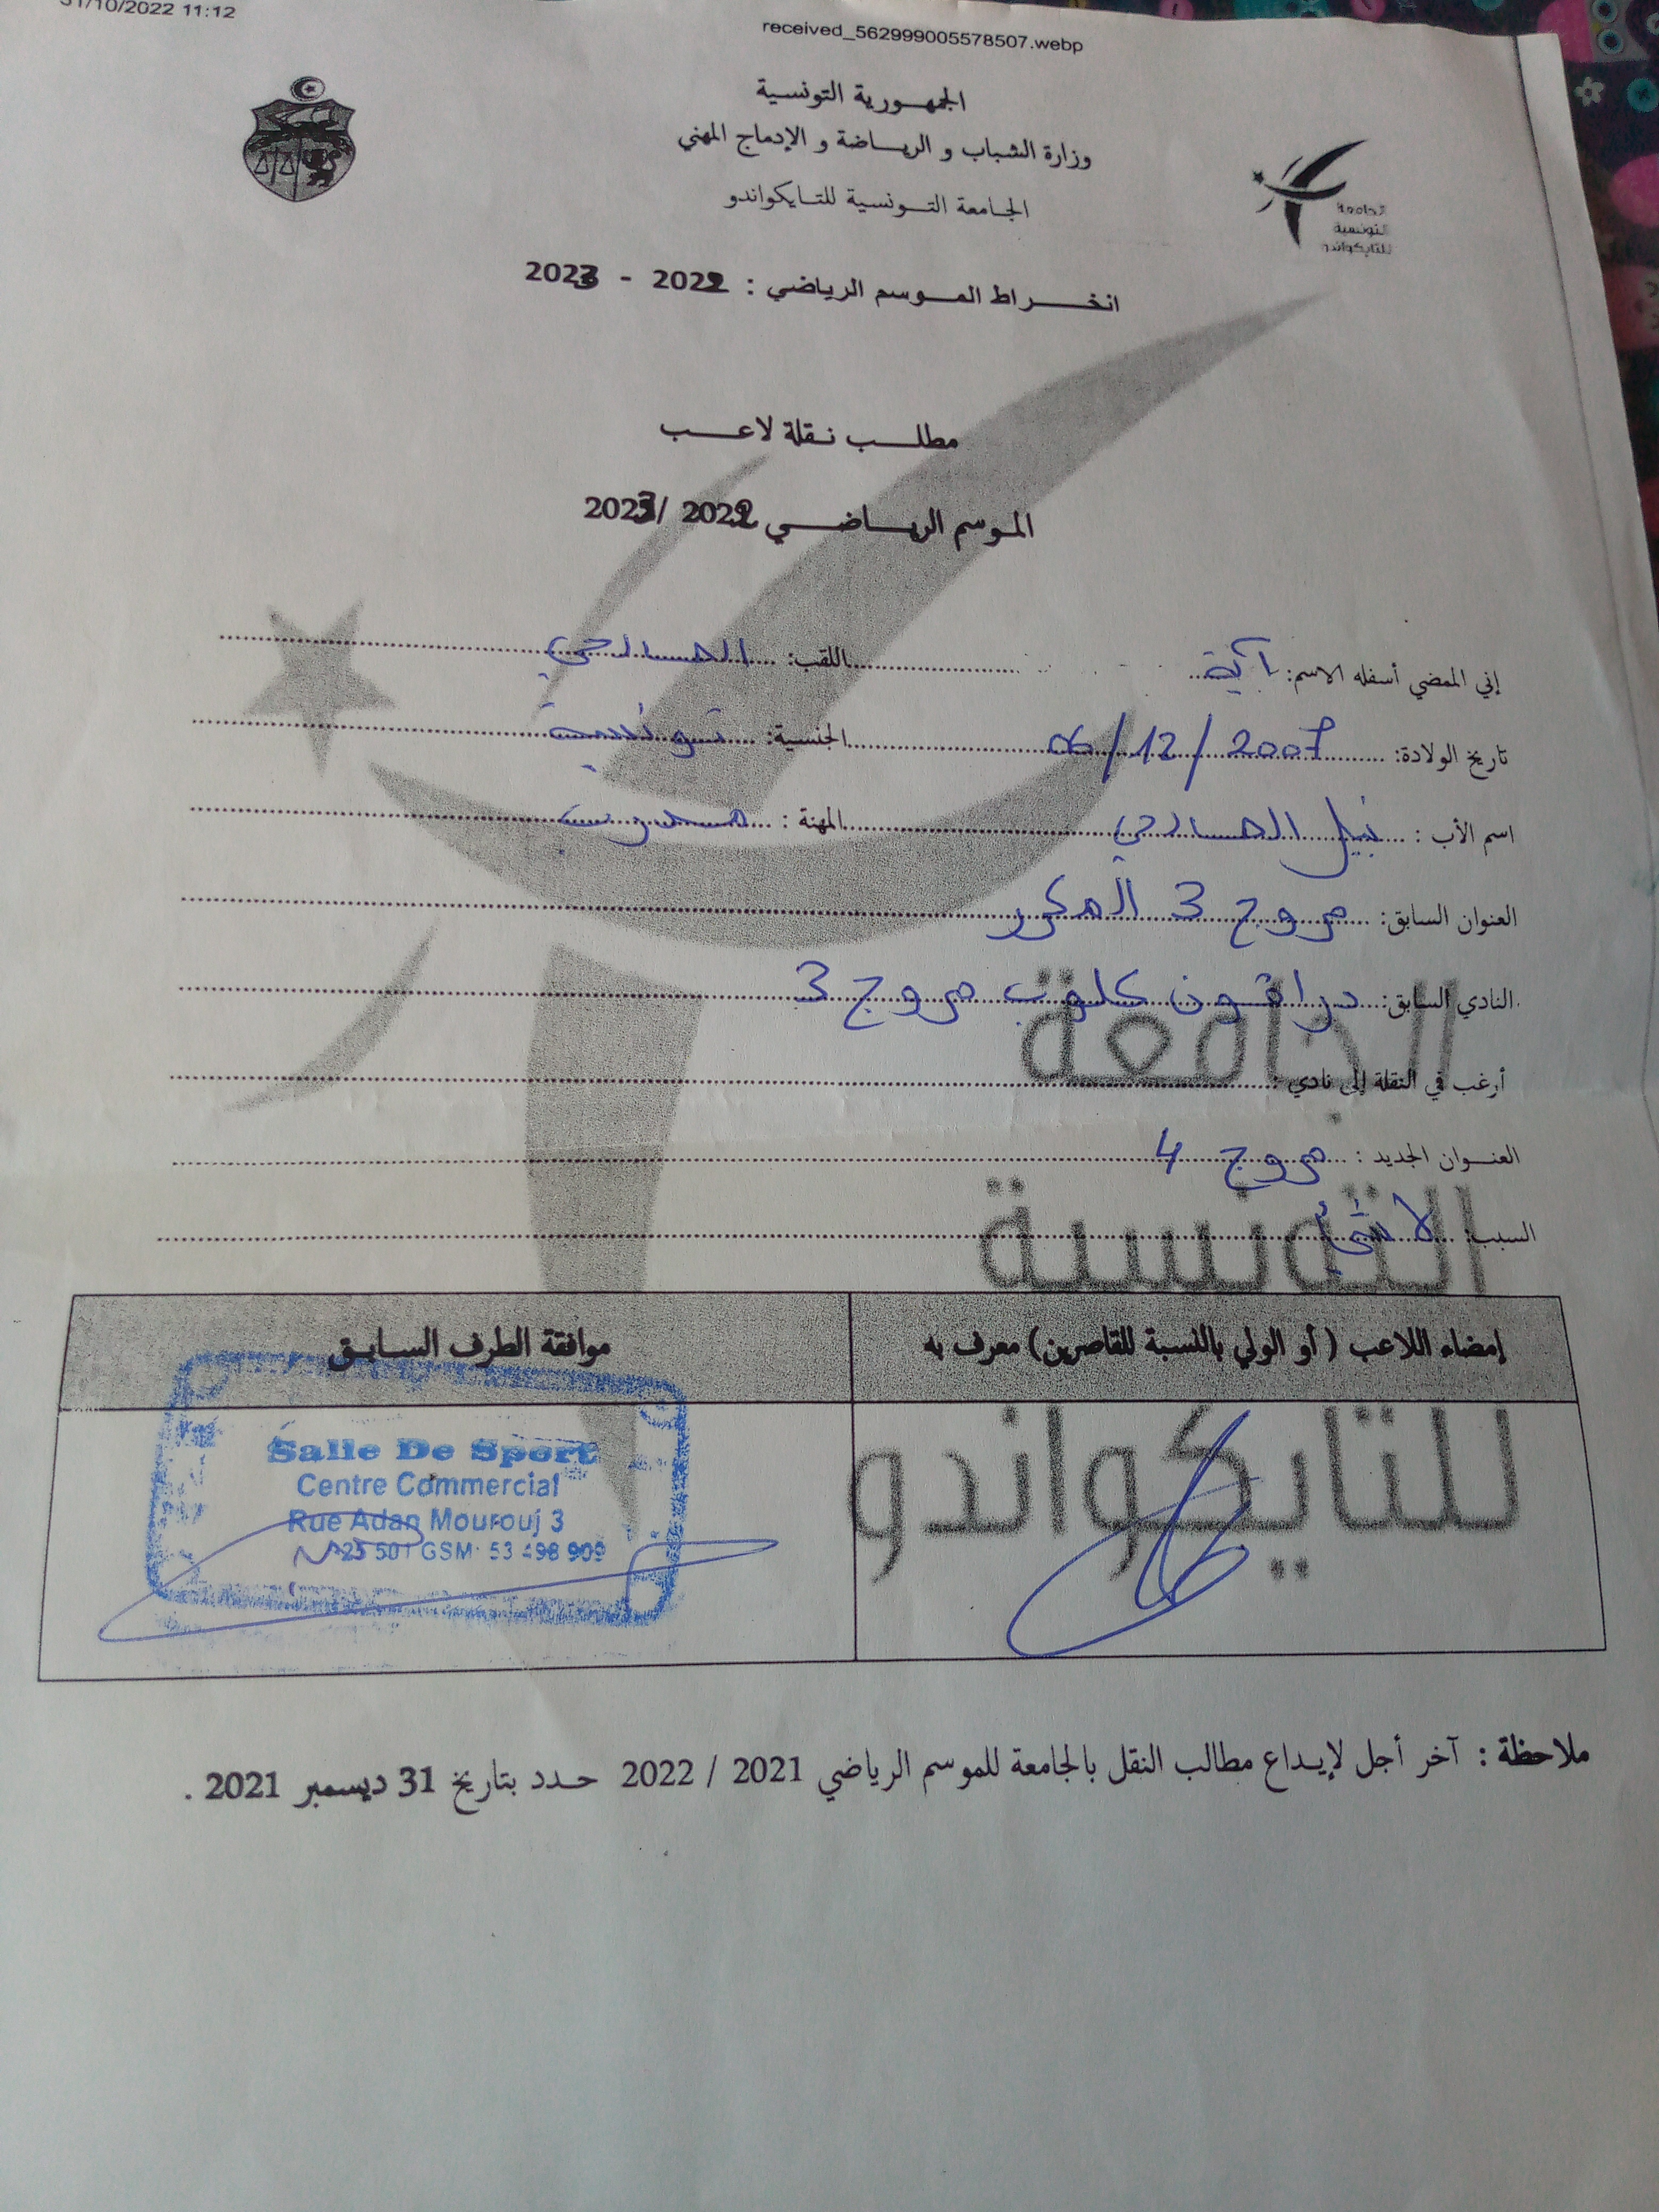 31/10/2022 11:12
received_562999005578507.webp
الجمهورية التونسية
وزارة الشباب و الرياضة و الإدماج المهني
الجامعة التونسية للتايكواندو
الجامعة
التونسية
للتايكواندو
انخراط الموسم الرياضي : 2022 - 2023
مطلب نقلة لاعب
الموسم الرياضي 2022 /2023
إني الممضي أسفله الاسم: آية اللقب: الصالحي
تاريخ الولادة: 06/12/2007 الجنسية: تونسية
اسم الأب : نبيل الصالحي المهنة :
العنوان السابق: مروج 3
النادي السابق: دراقون كلوب مروج 3
أرغب في النقلة إلى نادي :
العنوان الجديد : مروج 4
السبب: لا شئ
الجامعة
التونسية
للتايكواندو
إمضاء اللاعب ( أو الولي بالنسبة للقاصرين) معرف به
موافقة الطرف السابق
Salle De Sport
Centre Commercial
Rue Adan Mourouj 3
25 501 GSM: 53 498 909
ملاحظة : آخر أجل لإيداع مطالب النقل بالجامعة للموسم الرياضي 2021 / 2022 حدد بتاريخ 31 ديسمبر 2021 .